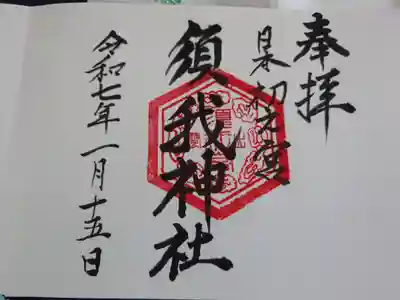 奉拝
日本初之宮
須我神社
令和七年一月十五日